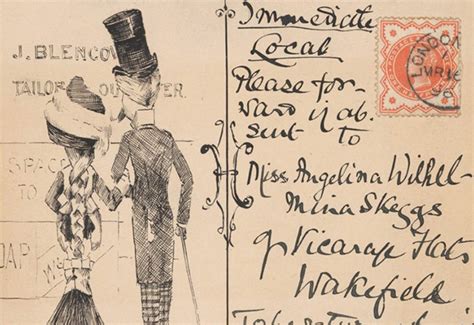 J. BLENCO
TAILOR OU   TTER.
SPACE
TO
OAP
Immediate
Local
Please for-
ward if ab.
sent to
Miss Angelina Wilhel-
mina Skeggs
9 Vicarage Flats
Wakefield
LONDON
MR 16